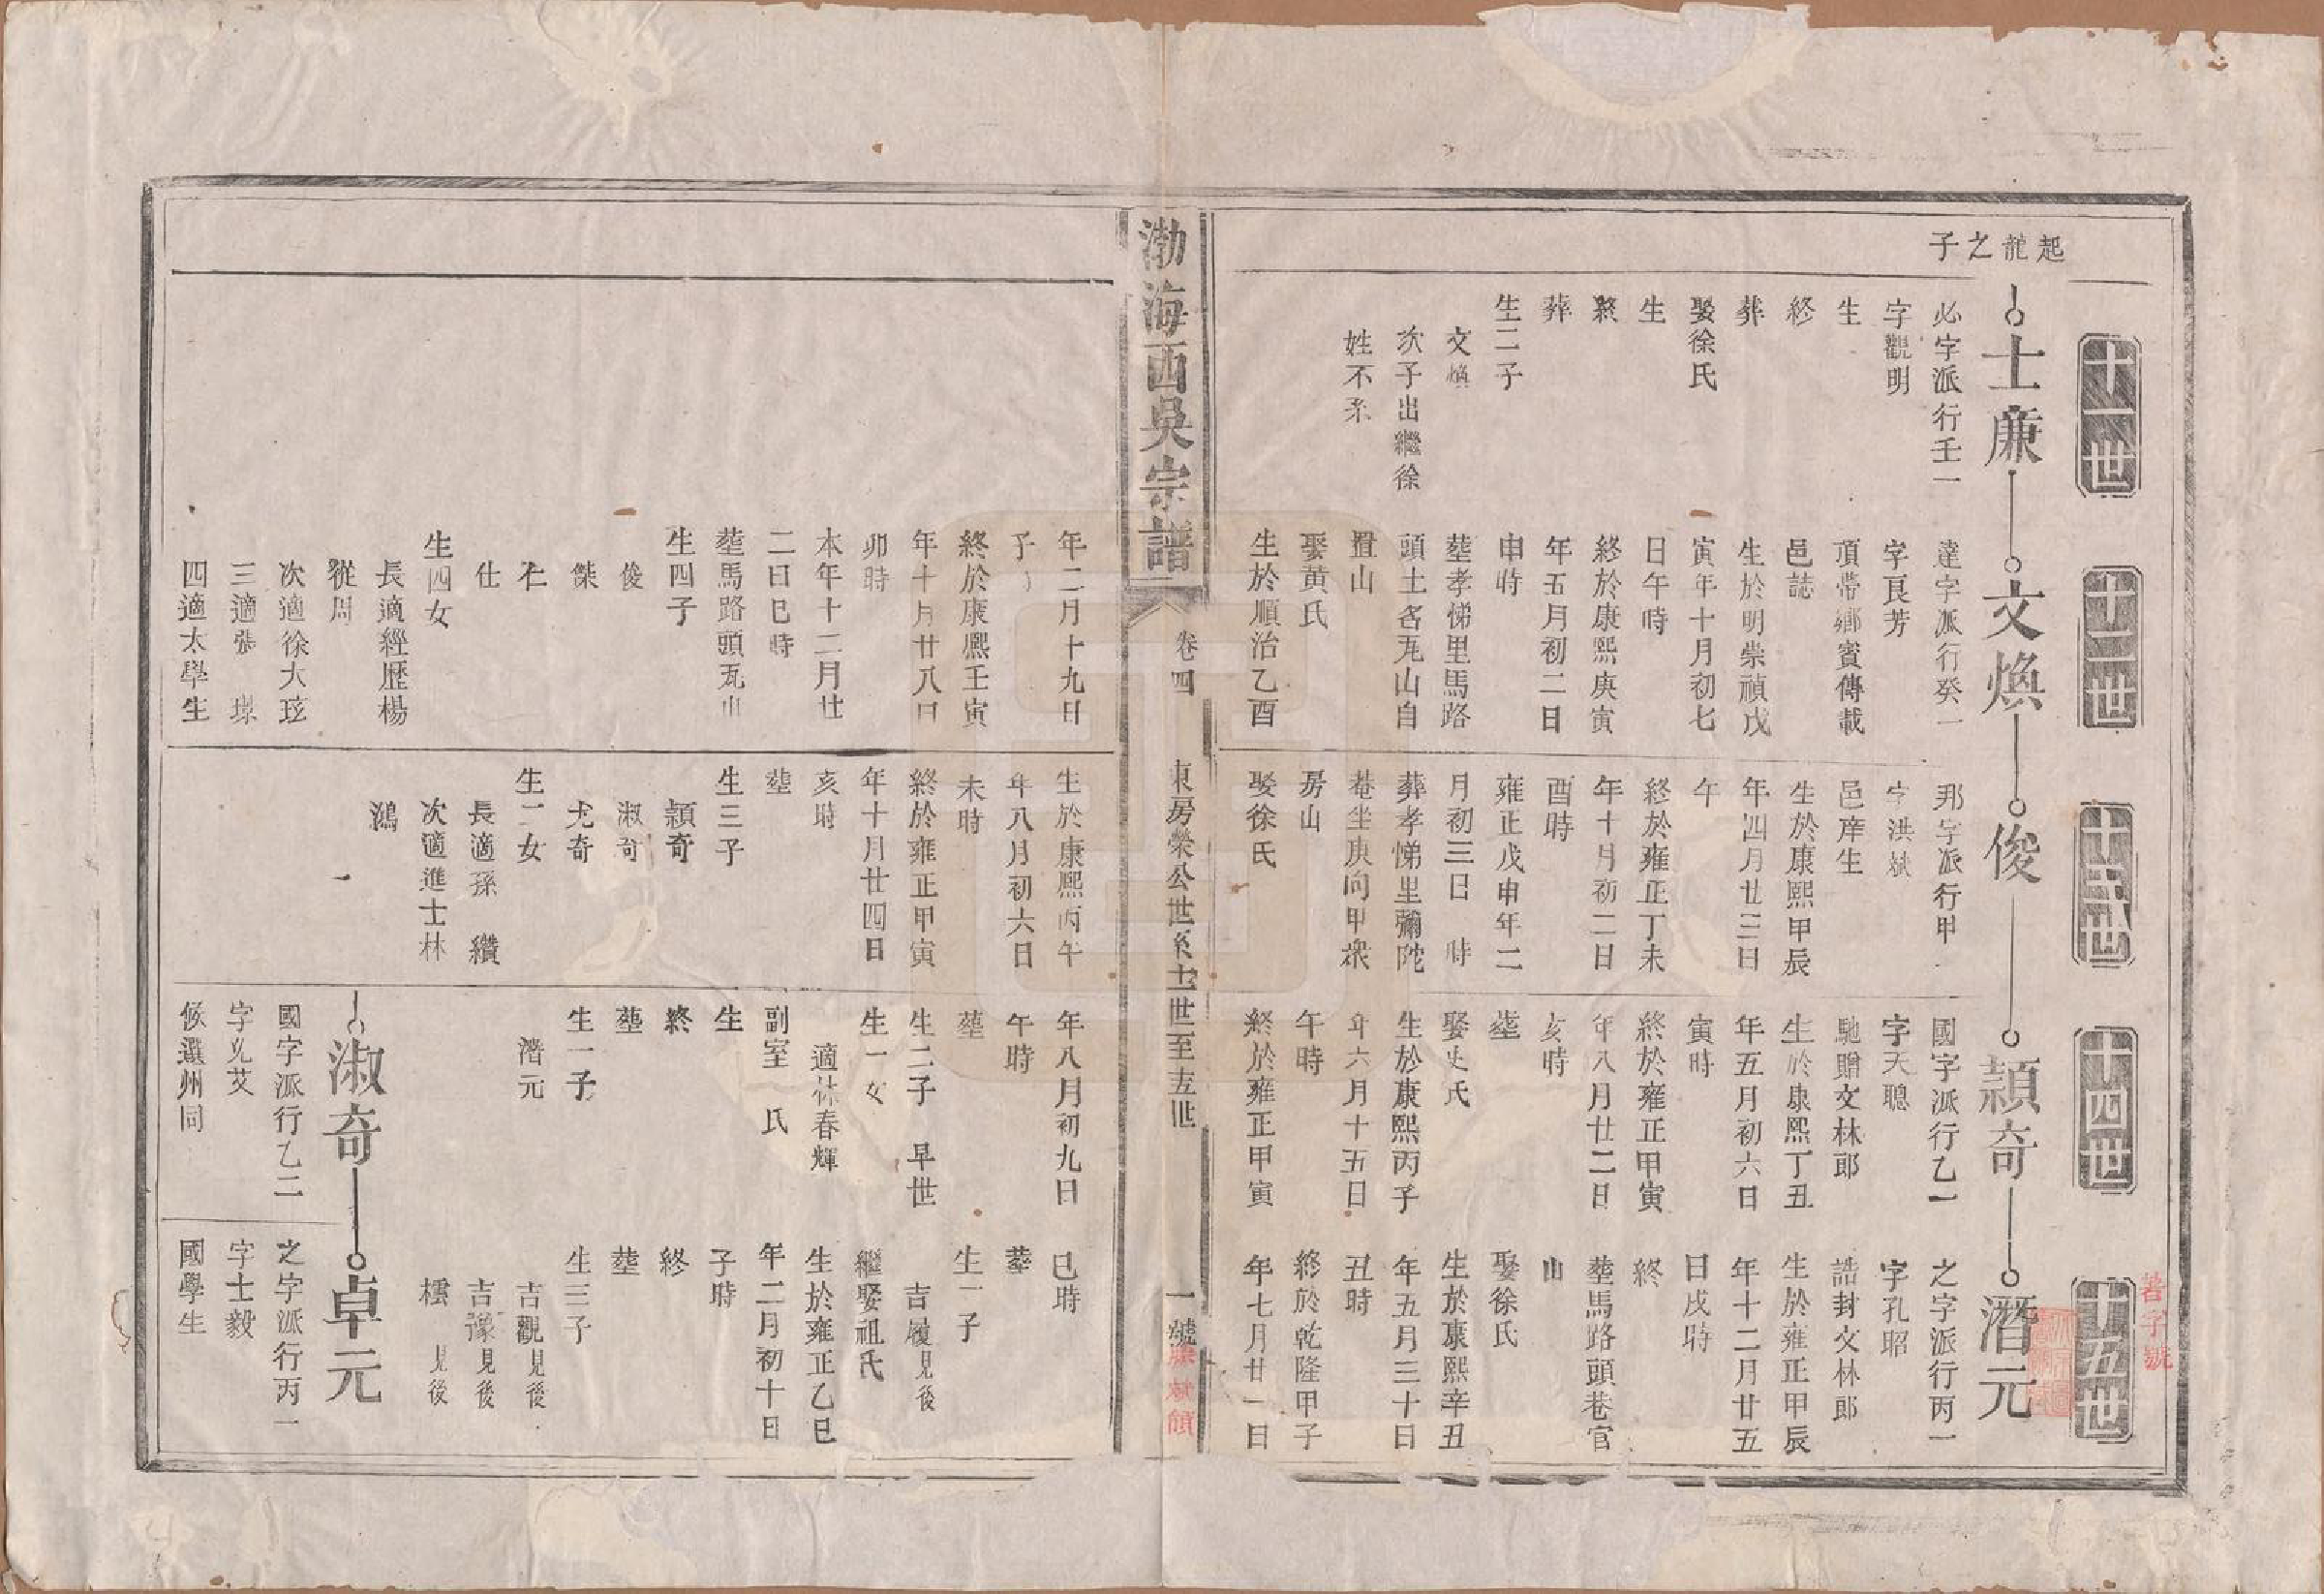 十一世
十二世
十三世
十四世
十五世
起龍之子
士廉
必字派行壬一
字觀明
生
終
葬
娶徐氏
生
終
葬
生二子
文煥
次子出繼徐
姓不系
文煥
達字派行癸一
字長芳
頂帶鄉賓傳載
邑誌
生於明崇禎戊
寅年十月初七
日午時
終於康熙庚寅
年五月初二日
申時
塟孝悌里馬路
頭土名瓦山自
置山
娶黄氏
生於順治乙酉
年二月十九日
子
終於康熙壬寅
年十月廿八日
卯時
本年十二月廿
二日巳時
塟馬路頭瓦山
生四子
俊
傑
仁
仕
生四女
長適經歷楊
從周
次適徐大玹
三適張
四適太學生
俊
邦字派行甲
字洪
邑庠生
生於康熙甲辰
年四月廿三日
午
終於雍正丁未
年十月初二日
酉時
雍正戊申年二
月初三日 時
葬孝悌里彌陀
菴坐庚向甲衆
房山
娶徐氏
生於康熙丙午
年八月初六日
未時
終於雍正甲寅
年十月廿四日
亥時
塟
生三子
頴奇
淑奇
尤奇
生二女
長適孫 纘
次適進士林
鴻
頴奇
國字派行乙一
字天聰
馳贈文林郎
生於康熙丁丑
年五月初六日
寅時
終於雍正甲寅
年八月廿二日
亥時
塟
娶史氏
生於康熙丙子
年六月十五日
午時
終於雍正甲寅
年八月初九日
午時
塟
生二子 早世
生一女
適林春輝
副室 氏
生
終
塟
生一子
潛元
潛元
之字派行丙一
字孔昭
誥封文林郎
生於雍正甲辰
年十二月廿五
日戌時
終
塟馬路頭巷官
山
娶徐氏
生於康熙辛丑
年五月三十日
丑時
終於乾隆甲子
年七月廿一日
巳時
塟
生一子
吉履見後
繼娶祖氏
生於雍正乙巳
年二月初十日
子時
終
塟
生三子
吉觀見後
吉豫見後
見後
淑奇
國字派行乙二
字允艾
候選州同
卓元
之字派行丙一
字士毅
國學生
渤海西吳宗譜
卷四
東房榮公世系十一世至十五世
一號